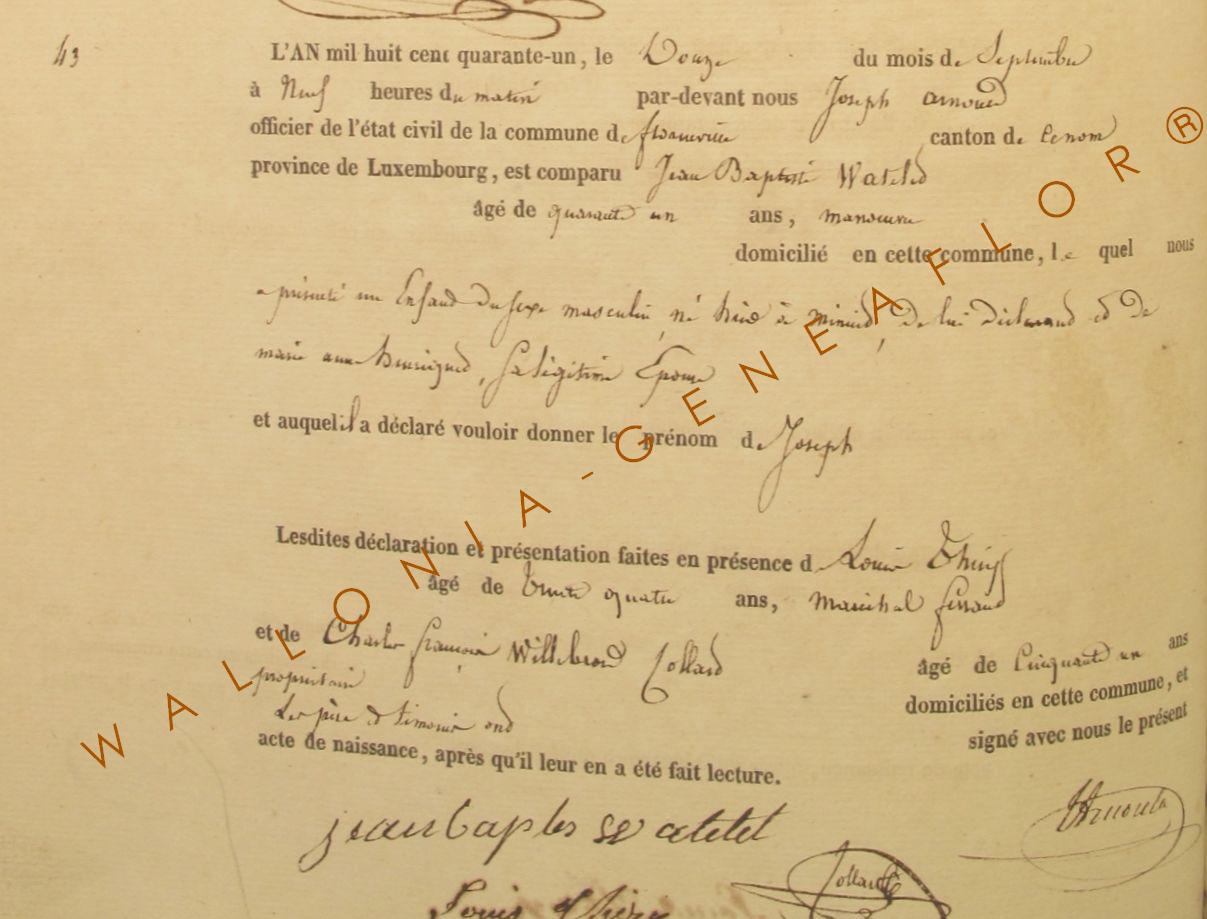 43
L'AN mil huit cent quarante-un, le Douze du mois de Septembre
à Neuf heures du matin par-devant nous Joseph arnould
officier de l'état civil de la commune de canton de
province de Luxembourg, est comparu Jean Baptiste Watelet
âgé de quarante un ans, manoeuvre
domicilié en cette commune, lequel nous
a présenté un Enfant du sexe masculin, né hier à minuit, de lui déclarant et de
marie anne , Sa légitime Epouse
et auquel il a déclaré vouloir donner le prénom de Joseph
Lesdites déclaration et présentation faites en présence d Louis Thiry
âgé de trente quatre ans, maréchal ferrant
et de Charles françois Willebrord Collard âgé de Cinquante un ans
propriétaire domiciliés en cette commune, et
Les père et témoins ont signé avec nous le présent
acte de naissance, après qu'il leur en a été fait lecture.
jean baptes watelet
Arnould
Collard
Louis Thiry
WALLONIA-GENEAFLOR®